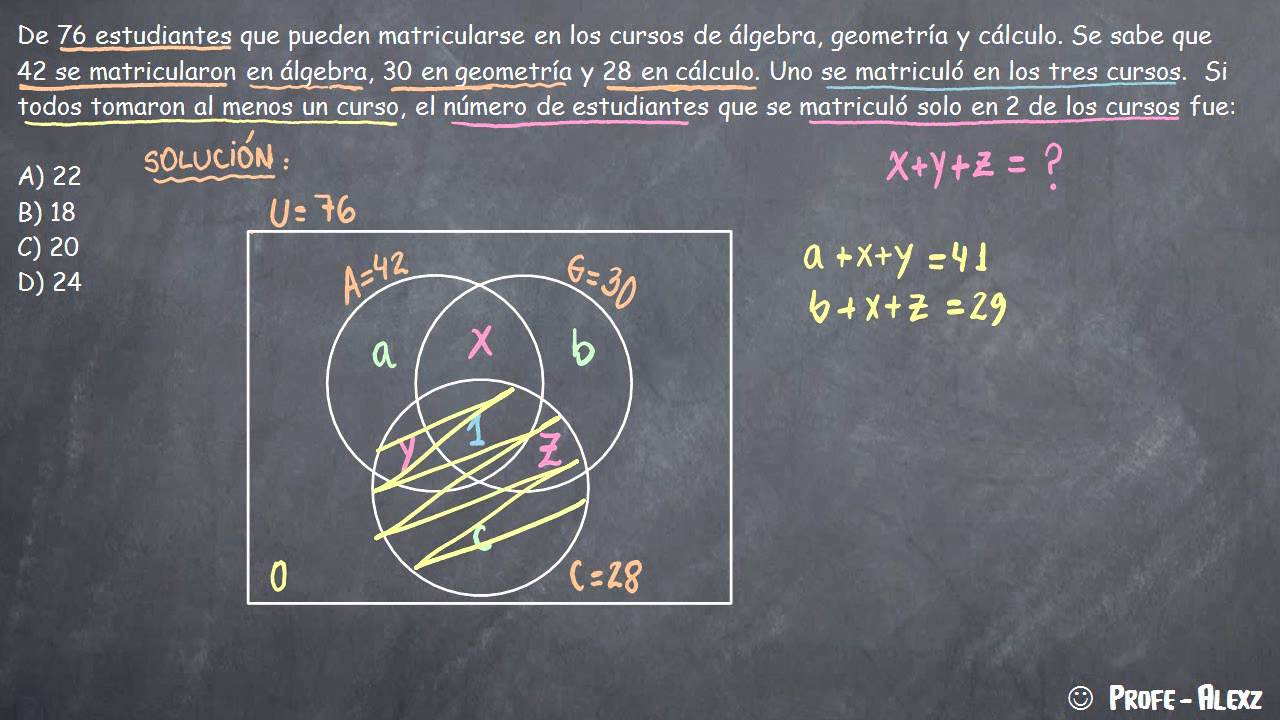 De 76 estudiantes que pueden matricularse en los cursos de álgebra, geometría y cálculo. Se sabe que
42 se matricularon en álgebra, 30 en geometría y 28 en cálculo. Uno se matriculó en los tres cursos. Si
todos tomaron al menos un curso, el número de estudiantes que se matriculó solo en 2 de los cursos fue:
A) 22
B) 18
C) 20
D) 24
SOLUCIÓN:
x+y+z = ?
U = 76
a + x + y = 41
b + x + z = 29
A=42
G=30
a
x
b
y
1
z
c
0
C=28
PROFE - ALEXZ